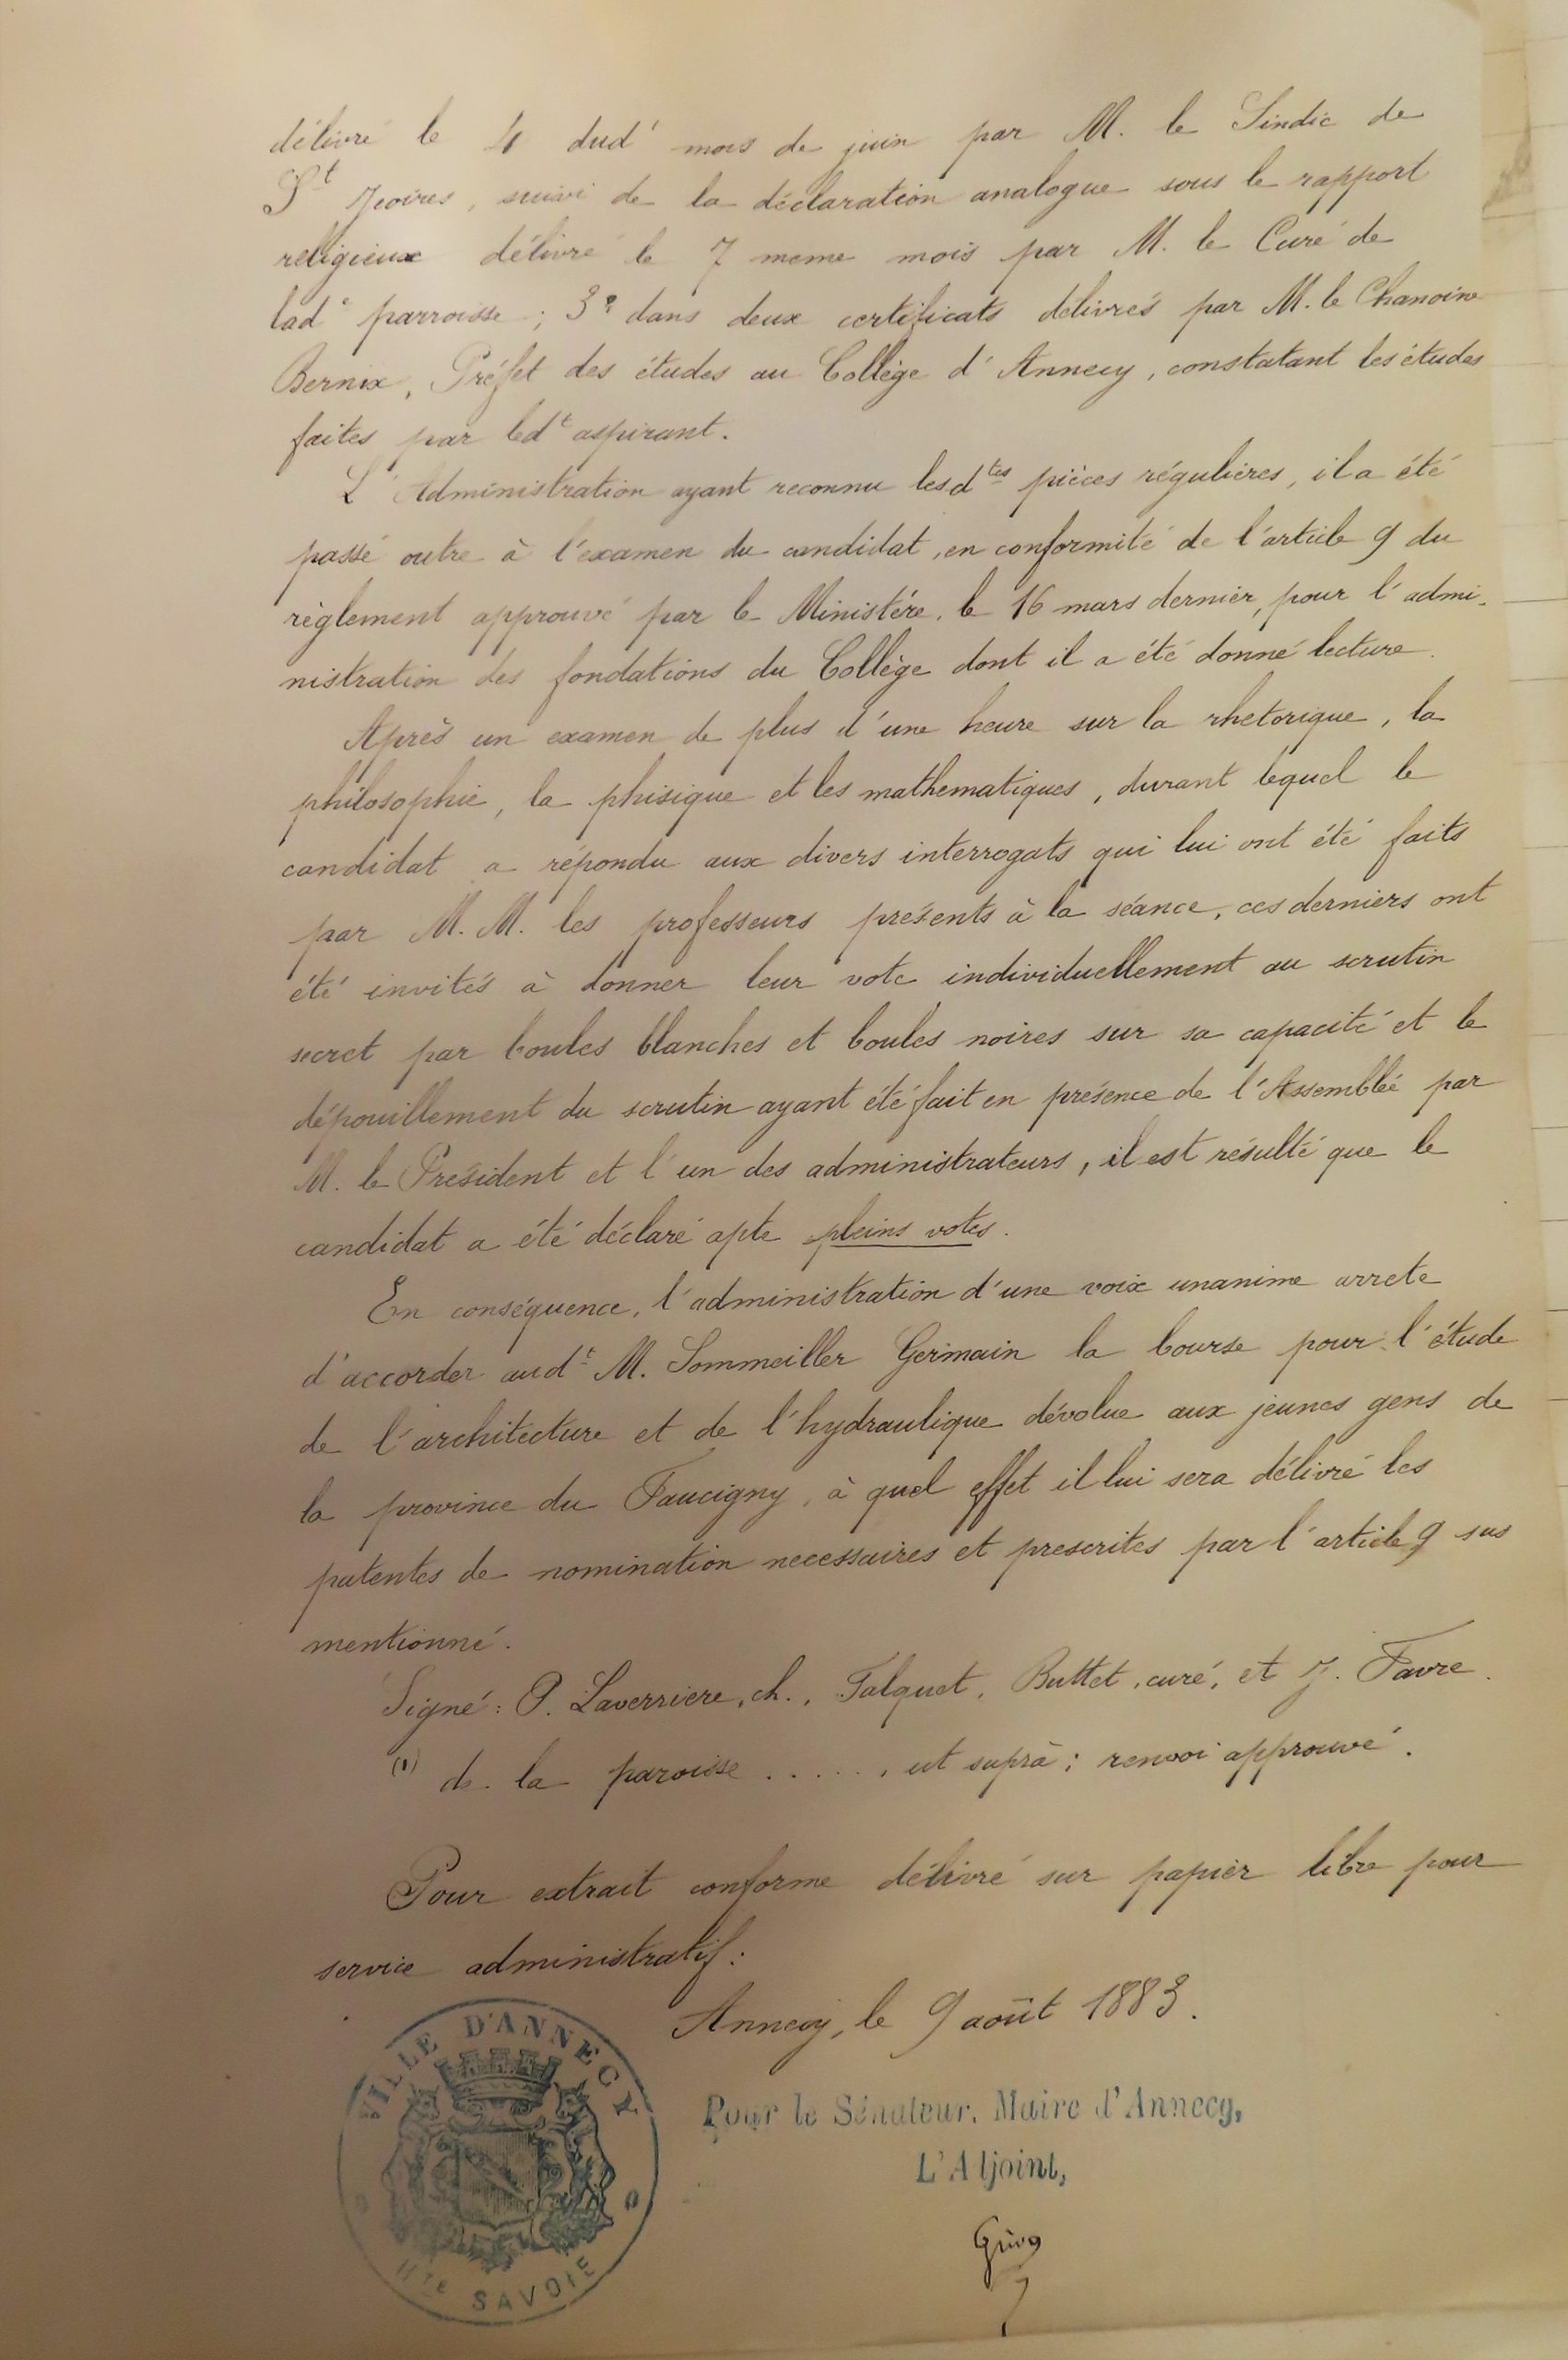 délivré le 4 dud' mois de juin par M. le Sindic de
St Jeoires, suivi de la déclaration analogue sous le rapport
religieux délivré le 7 meme mois par M. le Curé de
lade parroisse ; 3º dans deux certificats délivrés par M. le Chanoine
Bernix, Préfet des études au Collège d'Annecy, constatant les études
faites par ledt aspirant.
L'Administration ayant reconnu lesdtes pièces régulières, il a été
passé outre à l'examen du candidat, en conformité de l'article 9 du
règlement approuvé par le Ministére, le 16 mars dernier, pour l'admi-
nistration des fondations du Collège dont il a été donné lecture.
Après un examen de plus d'une heure sur la rhetorique, la
philosophie, la phisique et les mathematiques, durant lequel le
candidat a répondu aux divers interrogats qui lui ont été faits
paar M. M. les professeurs présents à la séance, ces derniers ont
été invités à donner leur vote individuellement au scrutin
secret par boules blanches et boules noires sur sa capacité et le
dépouillement du scrutin ayant été fait en présence de l'Assemblée par
M. le Président et l'un des administrateurs, il est résulté que le
candidat a été déclaré apte pleins votes.
En conséquence, l'administration d'une voix unanime arrete
d'accorder audt M. Sommeiller Germain la bourse pour l'étude
de l'architecture et de l'hydraulique dévolue aux jeunes gens de
la province du Faucigny, à quel effet il lui sera délivré les
patentes de nomination necessaires et prescrites par l'article 9 sus
mentionné.
Signé : P. Laverriere, ch., Falquet, Buttet, curé, et J. Favre.
(1) de la paroisse ....., ut suprà ; renvoi approuvé.
Pour extrait conforme délivré sur papier libre pour
service administratif :
Annecy, le 9 août 1883.
VILLE D'ANNECY
Hte SAVOIE
Pour le Sénateur, Maire d'Annecy,
L'Adjoint,